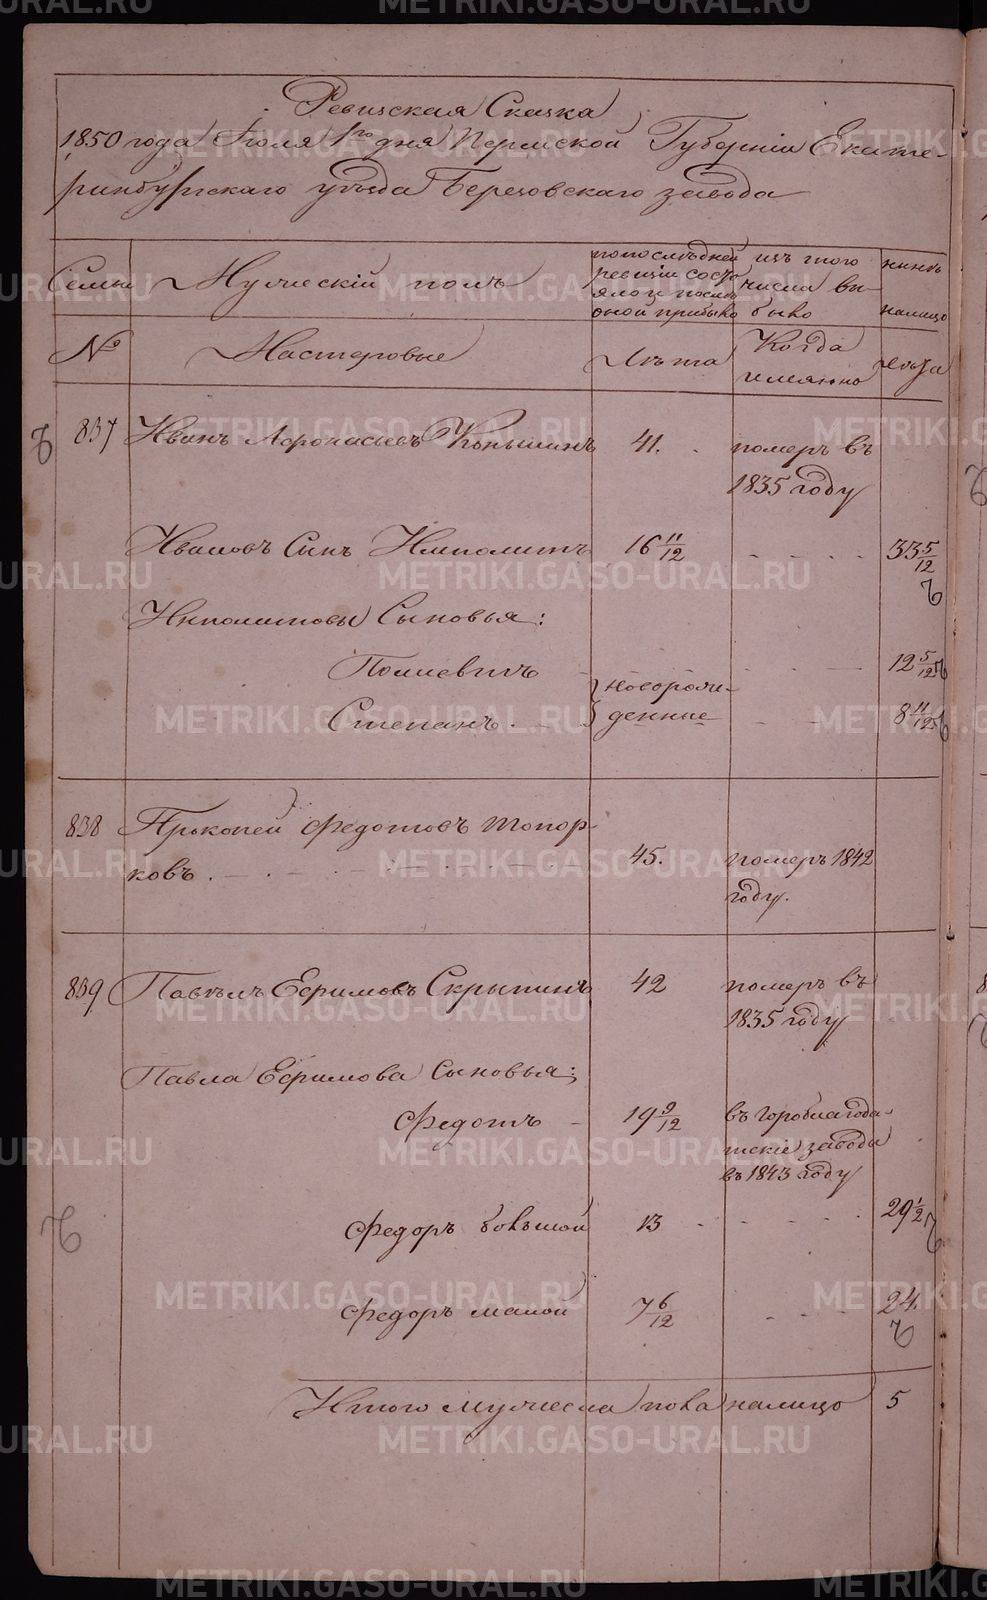 Ревизская Сказка
1850 года Іюля 1го дня Пермской Губерніи Екате-
ринбургскаго уѣзда Березовскаго завода
Семьи
Мужескій полъ
по послѣдней
ревизіи состо
яло и послѣ
оной прибыло
изъ того
числа вы-
было
нынѣ
налицо
№
Мастеровые
Лѣта
Когда
имянно
лѣта
837 Иванъ Афонасьевъ Конышинъ 41. померъ въ
1835 году
Ивановъ Сынъ Ипполитъ 16 11/12 33 5/12
Ипполитовы Сыновья:
Полиевктъ 12 5/12
новорож-
Степанъ денные 8 11/12
838 Прокопей Федотовъ Топор-
ковъ 45. померъ 1842
году.
839 Павелъ Ефимовъ Скрыпинъ 42 померъ въ
1835 году
Павла Ефимова Сыновья:
Федотъ 19 9/12 въ Гороблагода-
тские заводы
въ 1843 году
Федоръ большой 13 29 1/2
Федоръ малой 7 6/12 24.
Итого мужеска пола налицо 5
METRIKI.GASO-URAL.RU